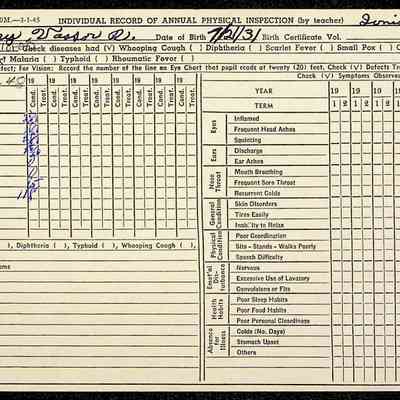 0M.—3-1-45 INDIVIDUAL RECORD OF ANNUAL PHYSICAL INSPECTION (by teacher)
Date of Birth 7/2/31 Birth Certificate Vol.
Check diseases had (✓) Whooping Cough ( ) Diphtheria ( ) Scarlet Fever ( ) Small Pox ( )
Malaria ( ) Typhoid ( ) Rheumatic Fever ( )
fect; For Vision: Record the number of the line on Eye Chart that pupil reads at twenty (20) feet. Check (✓) Defects Tre
19 19 19 19 19 19 19
Cond. Treat. Cond. Treat. Cond. Treat. Cond. Treat. Cond. Treat. Cond. Treat. Cond. Treat.
Check (✓) Symptoms Obser
YEAR 19 19 19
TERM 1 2 1 2 1 2
Eyes
Inflamed
Frequent Head Aches
Squinting
Ears
Discharge
Ear Aches
Nose Throat
Mouth Breathing
Frequent Sore Throat
Recurrent Colds
General Condition
Skin Disorders
Tires Easily
Inability to Relax
Physical Condition
Poor Coordination
Sits - Stands - Walks Poorly
Speech Difficulty
), Diphtheria ( ), Typhoid ( ), Whooping Cough ( ),
Emot'al Dis- turbance
Nervous
Excessive Use of Lavatory
Convulsions or Fits
Health Habits
Poor Sleep Habits
Poor Food Habits
Poor Personal Cleanliness
Absence for Illness
Colds (No. Days)
Stomach Upset
Others